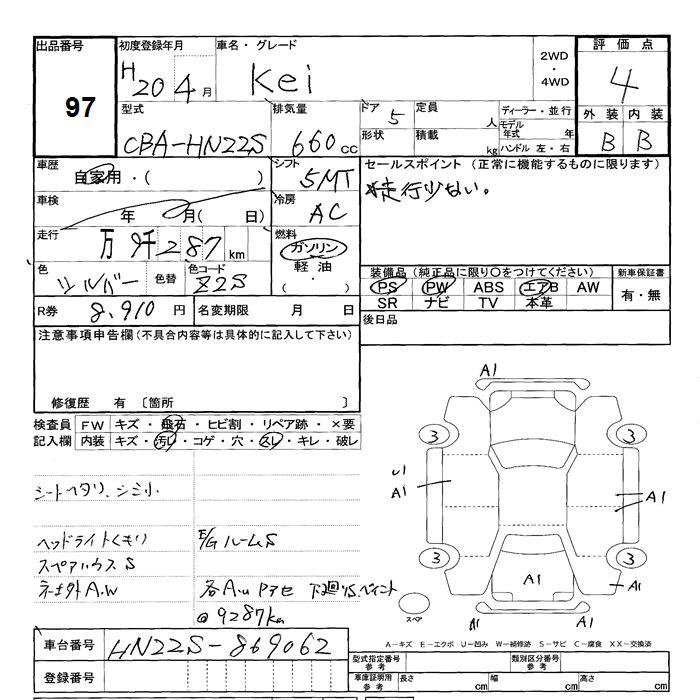 出品番号 初度登録年月 車名・グレード 2WD・4WD 評価点
97 H20 4月 Kei 4
型式 排気量 ドア 定員 人 ディーラー・並行 外装 内装
CBA-HN22S 660cc 5 モデル年式 年 B B
形状 積載 kg ハンドル 左・右
車歴 シフト セールスポイント (正常に機能するものに限ります)
自家用・( ) 5MT 走行少ない。
車検 冷房
年 月( 日) AC
走行 燃料
万 9千287km ガソリン
軽油
( ・ )
色 色替 色コード 装備品 (純正品に限り〇をつけてください) 新車保証書
シルバー Z2S PS PW ABS エアB AW 有・無
SR ナビ TV 本革
R券 8,910円 名変期限 月 日 後日品
注意事項申告欄(不具合内容等は具体的に記入して下さい)
修復歴 有 〔箇所 〕
検査員 FW キズ・飛石・ヒビ割・リペア跡・×要
記入欄 内装 キズ・汚レ・コゲ・穴・スレ・キレ・破レ
シートヘタリ、シミ小
ヘッドライトくもり E/GルームS
スペアハウスS
ネjナ外A.W
@9287km
A1
3 3
U1
A1 A1
3 3
A1 A1
スペア A1 A1
車台番号 HN22S-869062
登録番号
A-キズ E-エクボ U-凹み W-補修跡 S-サビ C-腐食 XX-交換済
型式指定番号 参考 類別区分番号 参考
車庫証明用 参考 長さ cm 幅 cm 高さ cm